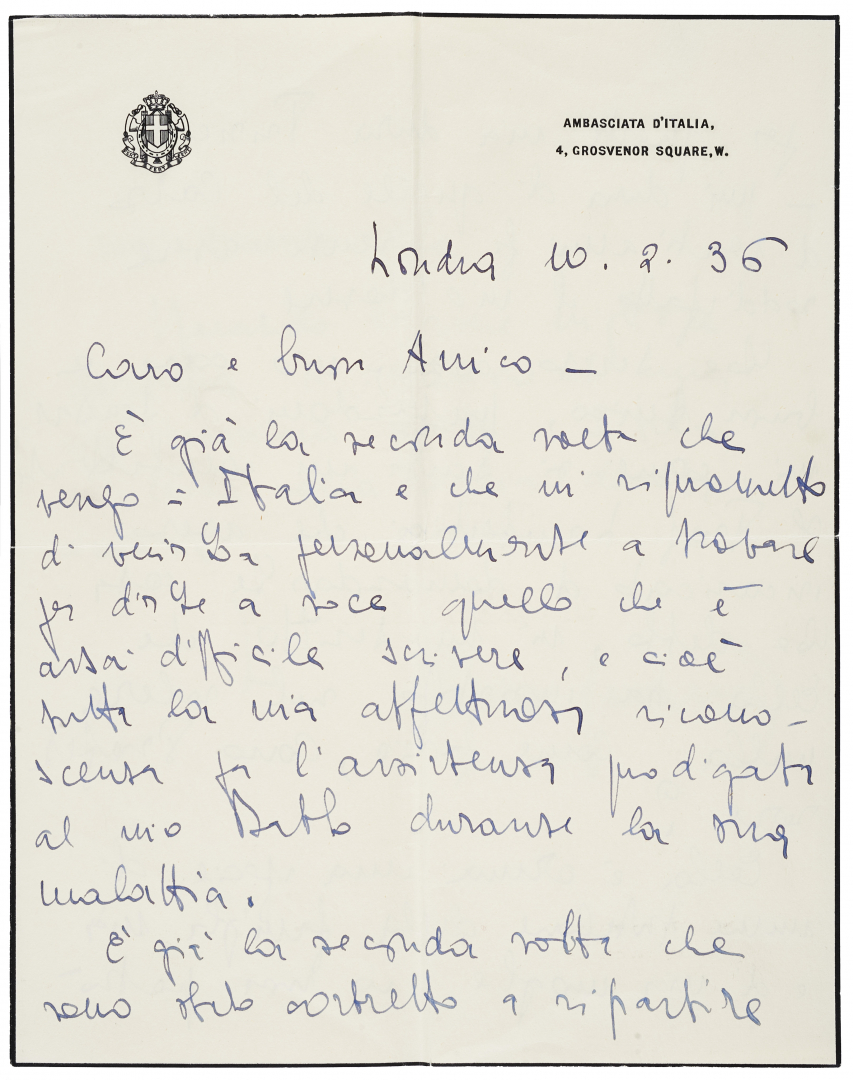 AMBASCIATA D'ITALIA,
4, GROSVENOR SQUARE, W.
FERT
Londra 10. 2. 36
Caro e buon Amico —
È già la seconda volta che
vengo in Italia e che mi riprometto
di venirLa personalmente a trovare
per dirLe a voce quello che è
assai difficile scrivere, e cioè
tutta la mia affettuosa ricono-
scenza per l'assistenza prodigata
al mio Babbo durante la sua
malattia.
È già la seconda volta che
sono stato costretto a ripartire